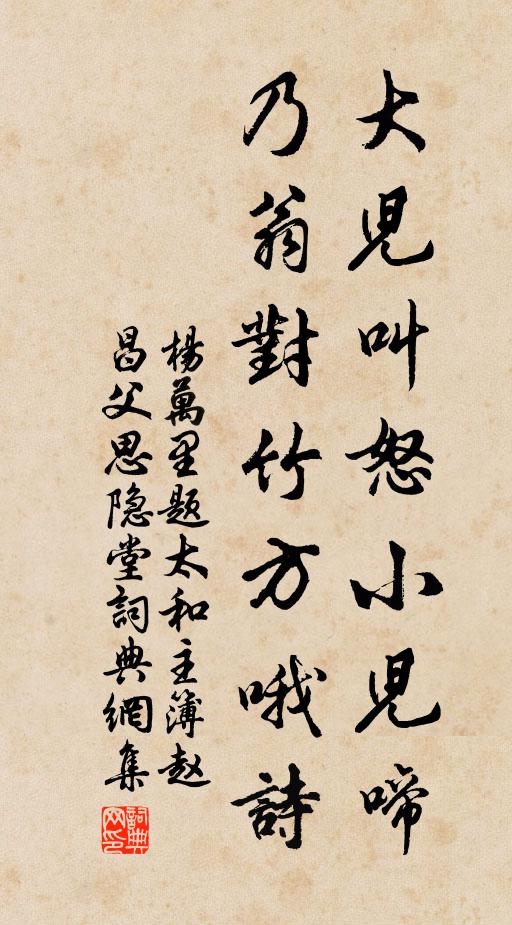 大兒叫怒小兒啼
乃翁對竹方哦詩
楊萬里題太和主簿赵
昌父思隐堂詞典網集
詞典网印